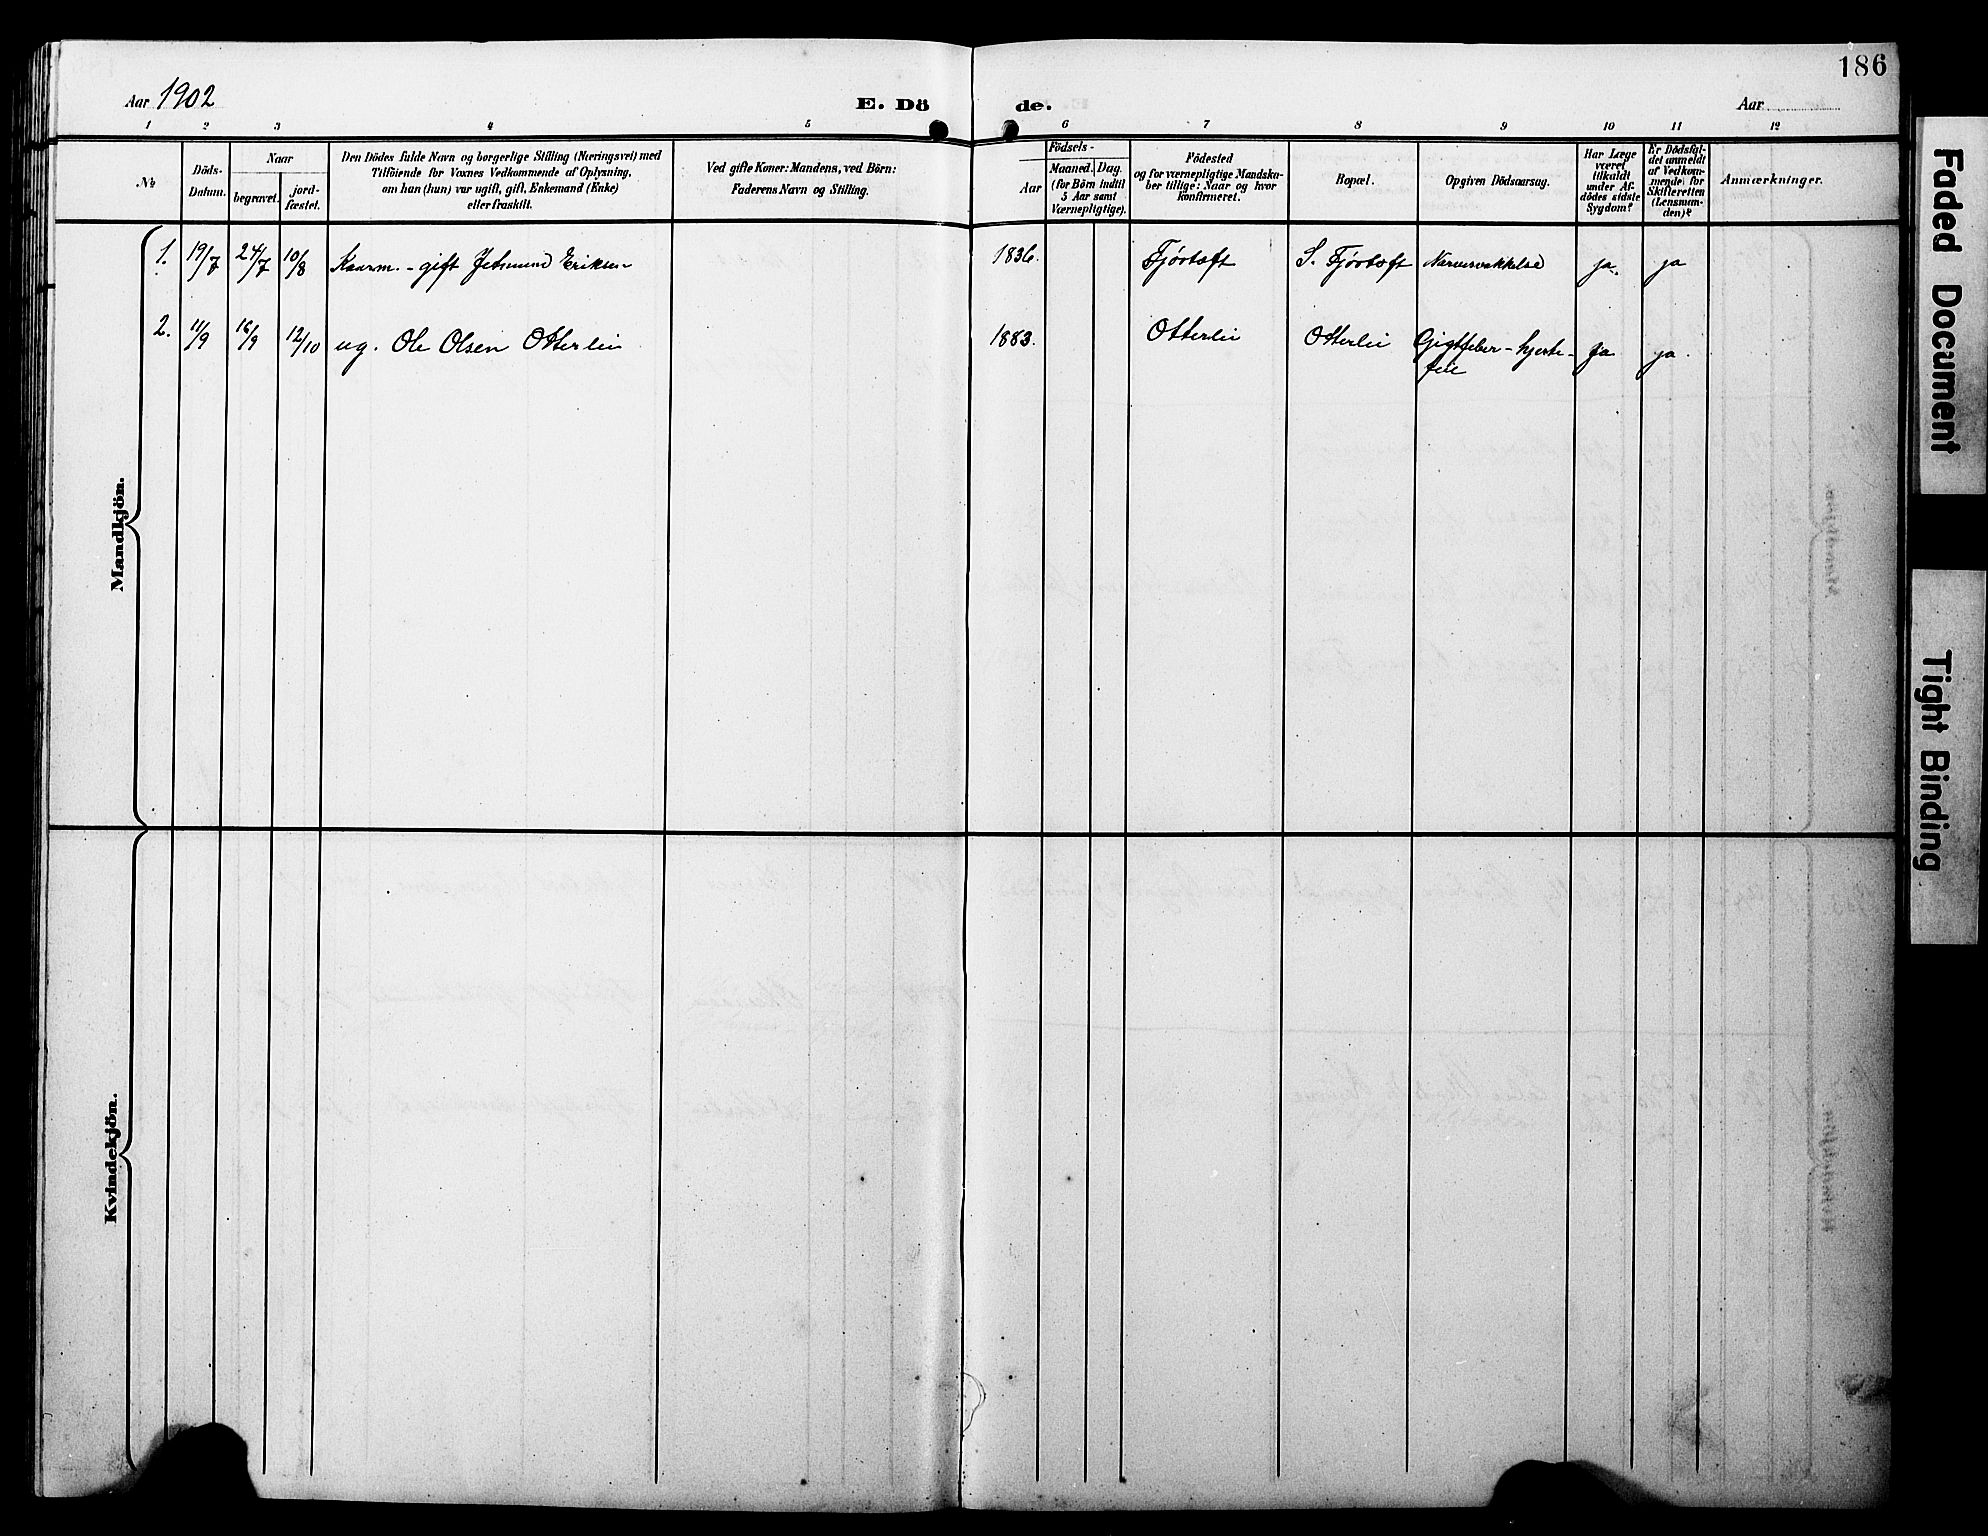 186
Aar 1902
E. Dö
de.
Aar
1 2 3 4 5 6 7 8 9 10 11 12
No
Döds-
Datum.
Naar
begravet.
jord-
fæstet.
Den Dödes fulde Navn og borgerlige Stilling (Næringsvei) med
Tilföiende for Voxnes Vedkommende af Oplysning,
om han (hun) var ugift, gift, Enkemand (Enke)
eller fraskilt.
Ved gifte Koner: Mandens, ved Börn:
Faderens Navn og Stilling.
Födsels-
Aar
Maaned.
Dag.
(for Börn indtil
5 Aar samt
Værnepligtige).
Födested
og for værnepligtige Mandska-
ber tillige: Naar og hvor
konfirmeret.
Bopæl.
Opgiven Dödsaarsag.
Har Læge
været
tilkaldt
under Af-
dödes sidste
Sygdom?
Er Dödsfal-
det anmeldt
af Vedkom-
mende for
Skifteretten
(Lensman-
den)?
Anmærkninger.
Mandkjön.
1. 19/7 24/7 10/8 Kaarm. - gift Jetmund Eriksen 1836. Fjørtoft S. Fjørtoft Nervesvækkelse ja. ja
2. 11/9 16/9 12/10 ug. Ole Olsen Otterlei 1883. Otterlei Otterlei Gigtfeber - hjerte- ja ja.
feil
Kvindekjön.
Faded Document
Tight Binding